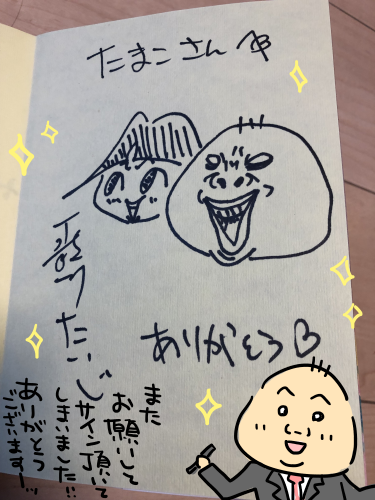 たまこさん
ありがとう♡
また
お願いして
サイン頂いて
しまいました!!
ありがとう
ございますー!!